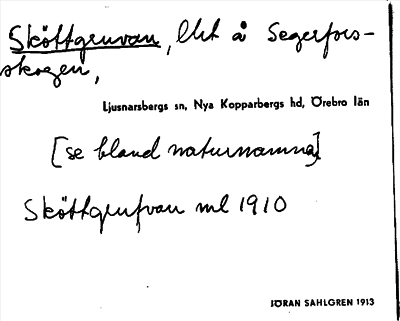 Sköttgruvan, lht å Segerfors-
skogen,
Ljusnarsbergs sn, Nya Kopparbergs hd, Örebro län
[se bland naturnamna]
Sköttgrufvan ml 1910
JÖRAN SAHLGREN 1913